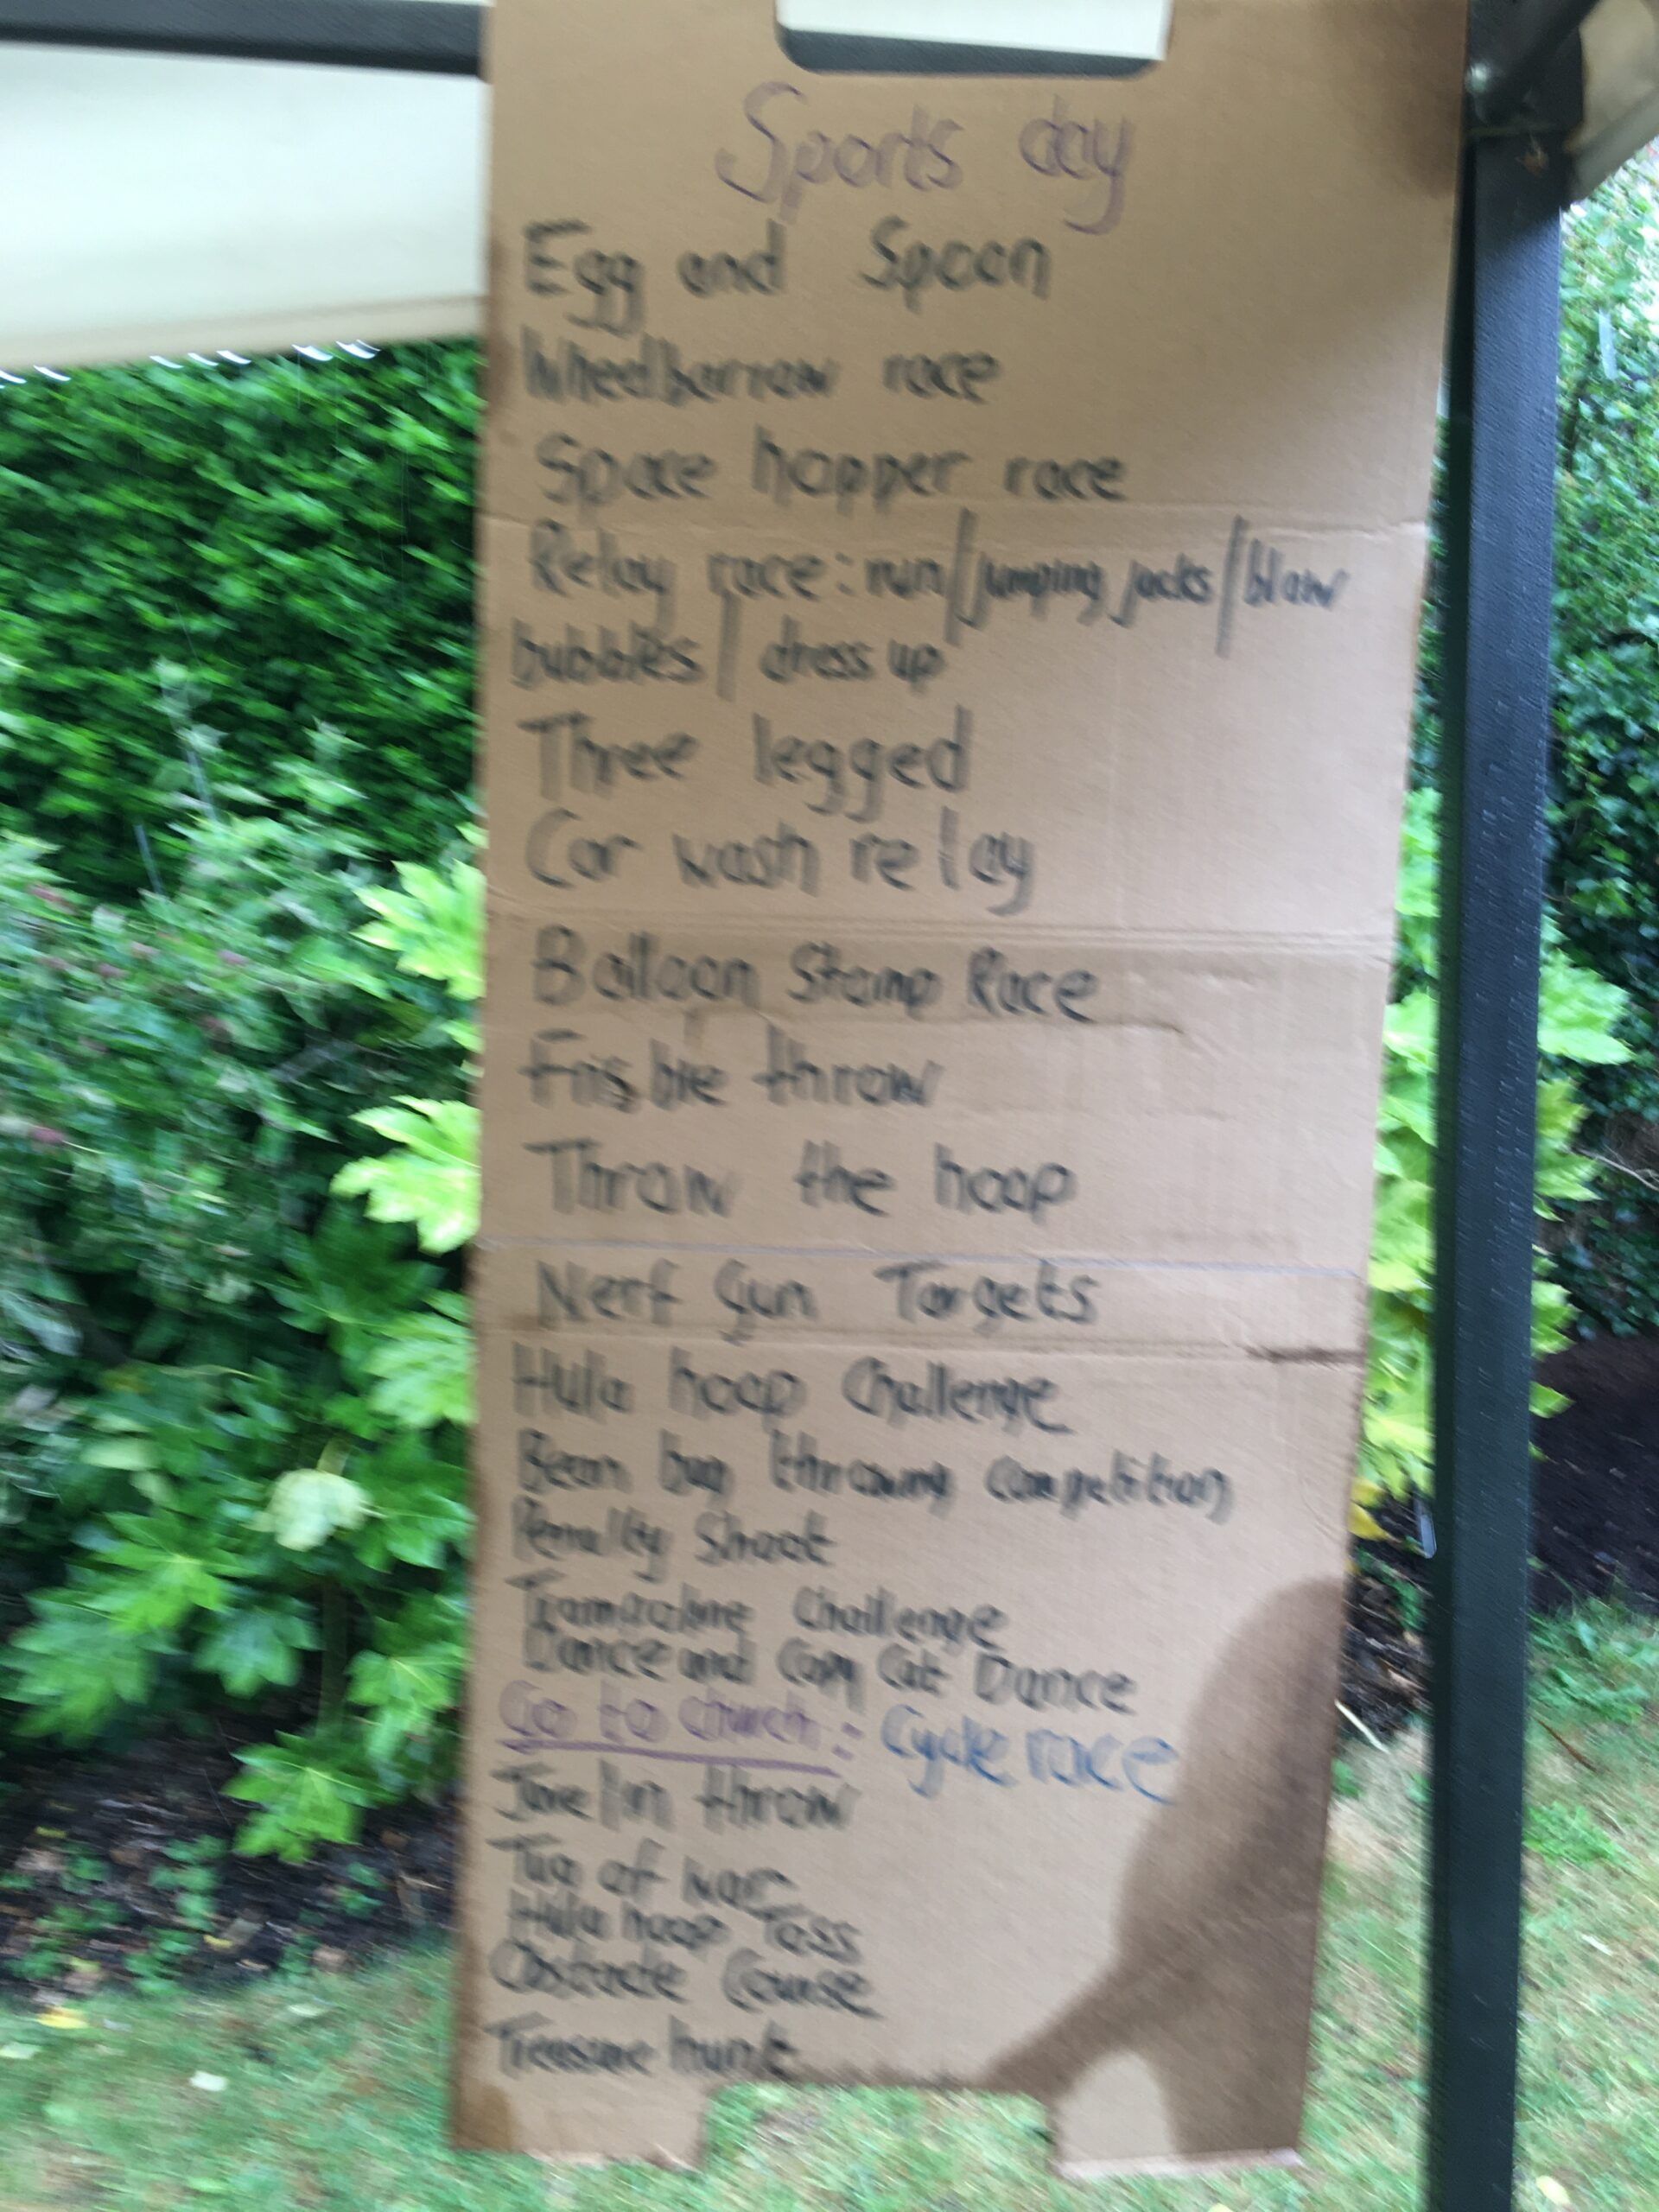 Sports day
Egg and Spoon
Wheelbarrow race
Space hopper race
Relay race: run/jumping jacks/blow
bubbles/dress up
Three legged
Car wash relay
Balloon Stomp Race
Frisbie throw
Throw the hoop
Nerf Gun Targets
Hula hoop Challenge
Bean bag throwing competition
Penalty Shoot
Trampoline Challenge
Dance and Copy Cat Dance
Go to church: Cycle race
Javelin throw
Tug of war
Hula hoop Toss
Obstacle Course
Treasure hunt